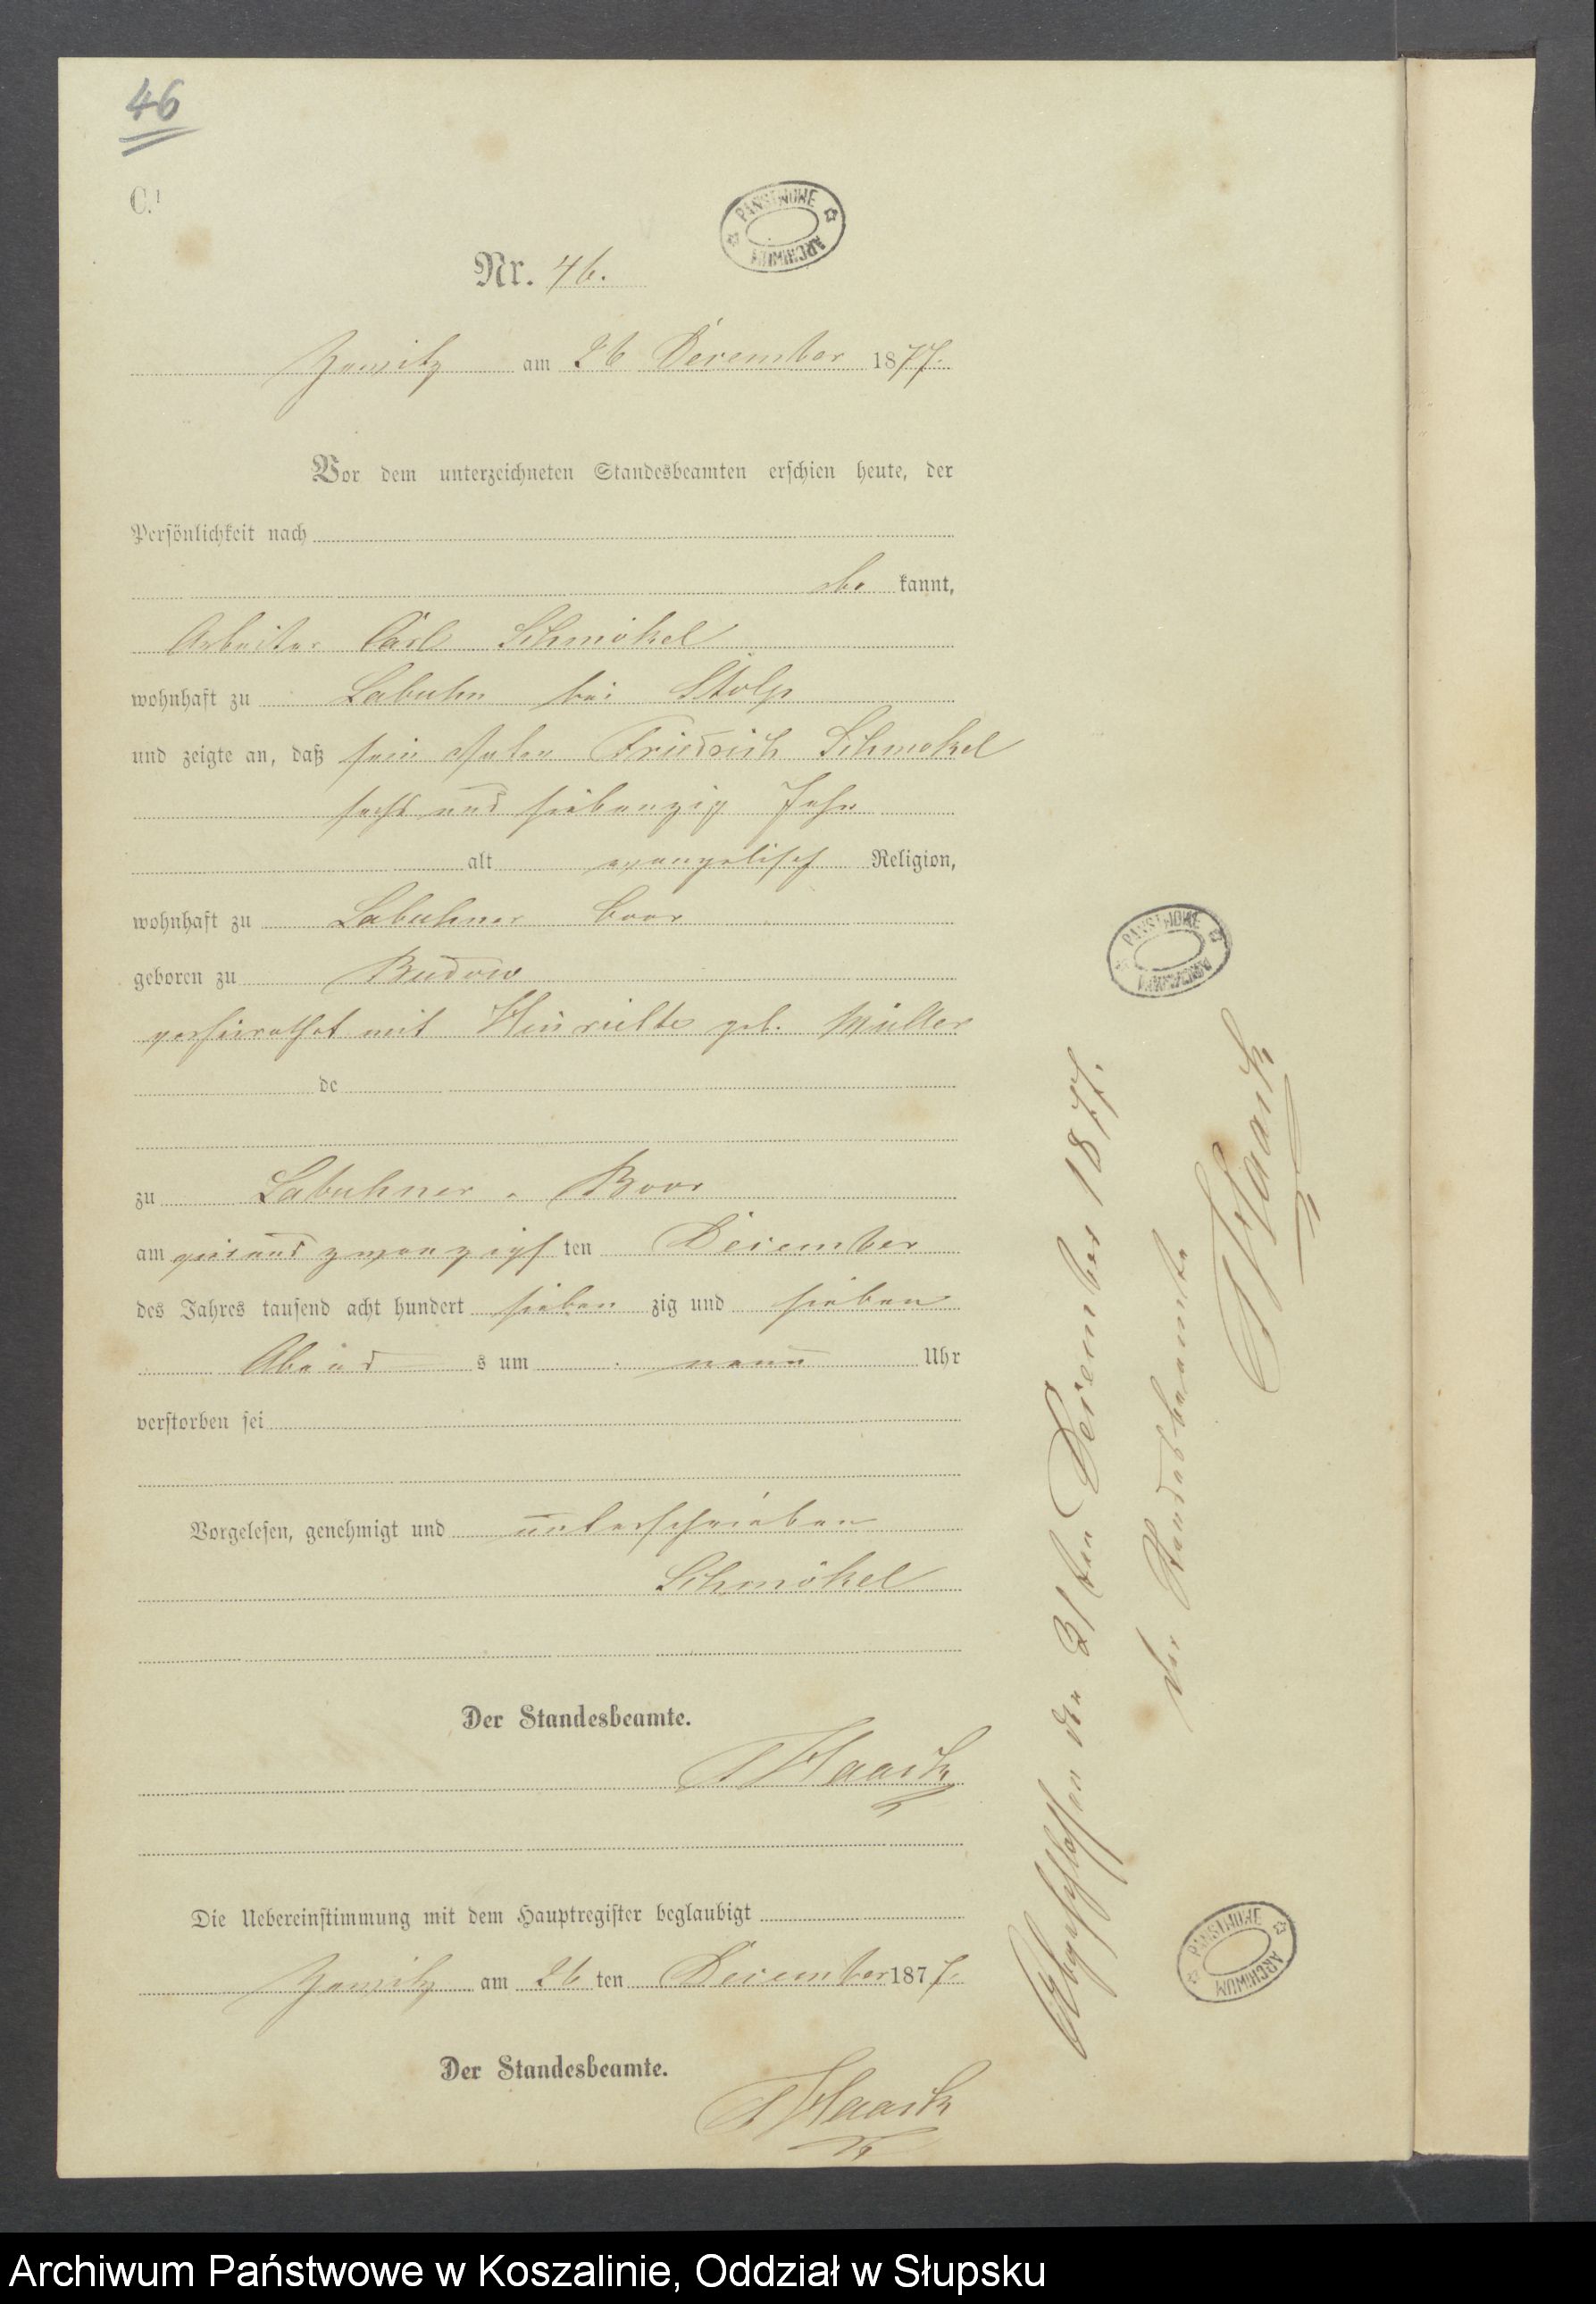 46
C.
Nr. 46.
am 26 December 1877.
Vor dem unterzeichneten Standesbeamten erschien heute, der
Persönlichkeit nach
be kannt,
Arbeiter Carl Schmökel
wohnhaft zu Labuhn bei Stolp
und zeigte an, daß sein Friedrich Schmökel
sechs und siebenzig Jahr
alt evangelisch Religion,
wohnhaft zu Labuhner
geboren zu Budow
verheirathet mit geb. Müller
de
zu Labuhner
am ten December
des Jahres tausend acht hundert sieben zig und sieben
Abend s um neun Uhr
verstorben sei
Vorgelesen, genehmigt und unterschrieben
Schmökel
Der Standesbeamte.
Haack
Die Uebereinstimmung mit dem Hauptregister beglaubigt
am 26 ten December 1877.
Der Standesbeamte.
Haack
Abgeschlossen den 31ten December 1877.
der Standesbeamte
Haack
PAŃSTWOWE ARCHIWUM
PAŃSTWOWE ARCHIWUM
PAŃSTWOWE ARCHIWUM
Archiwum Państwowe w Koszalinie, Oddział w Słupsku